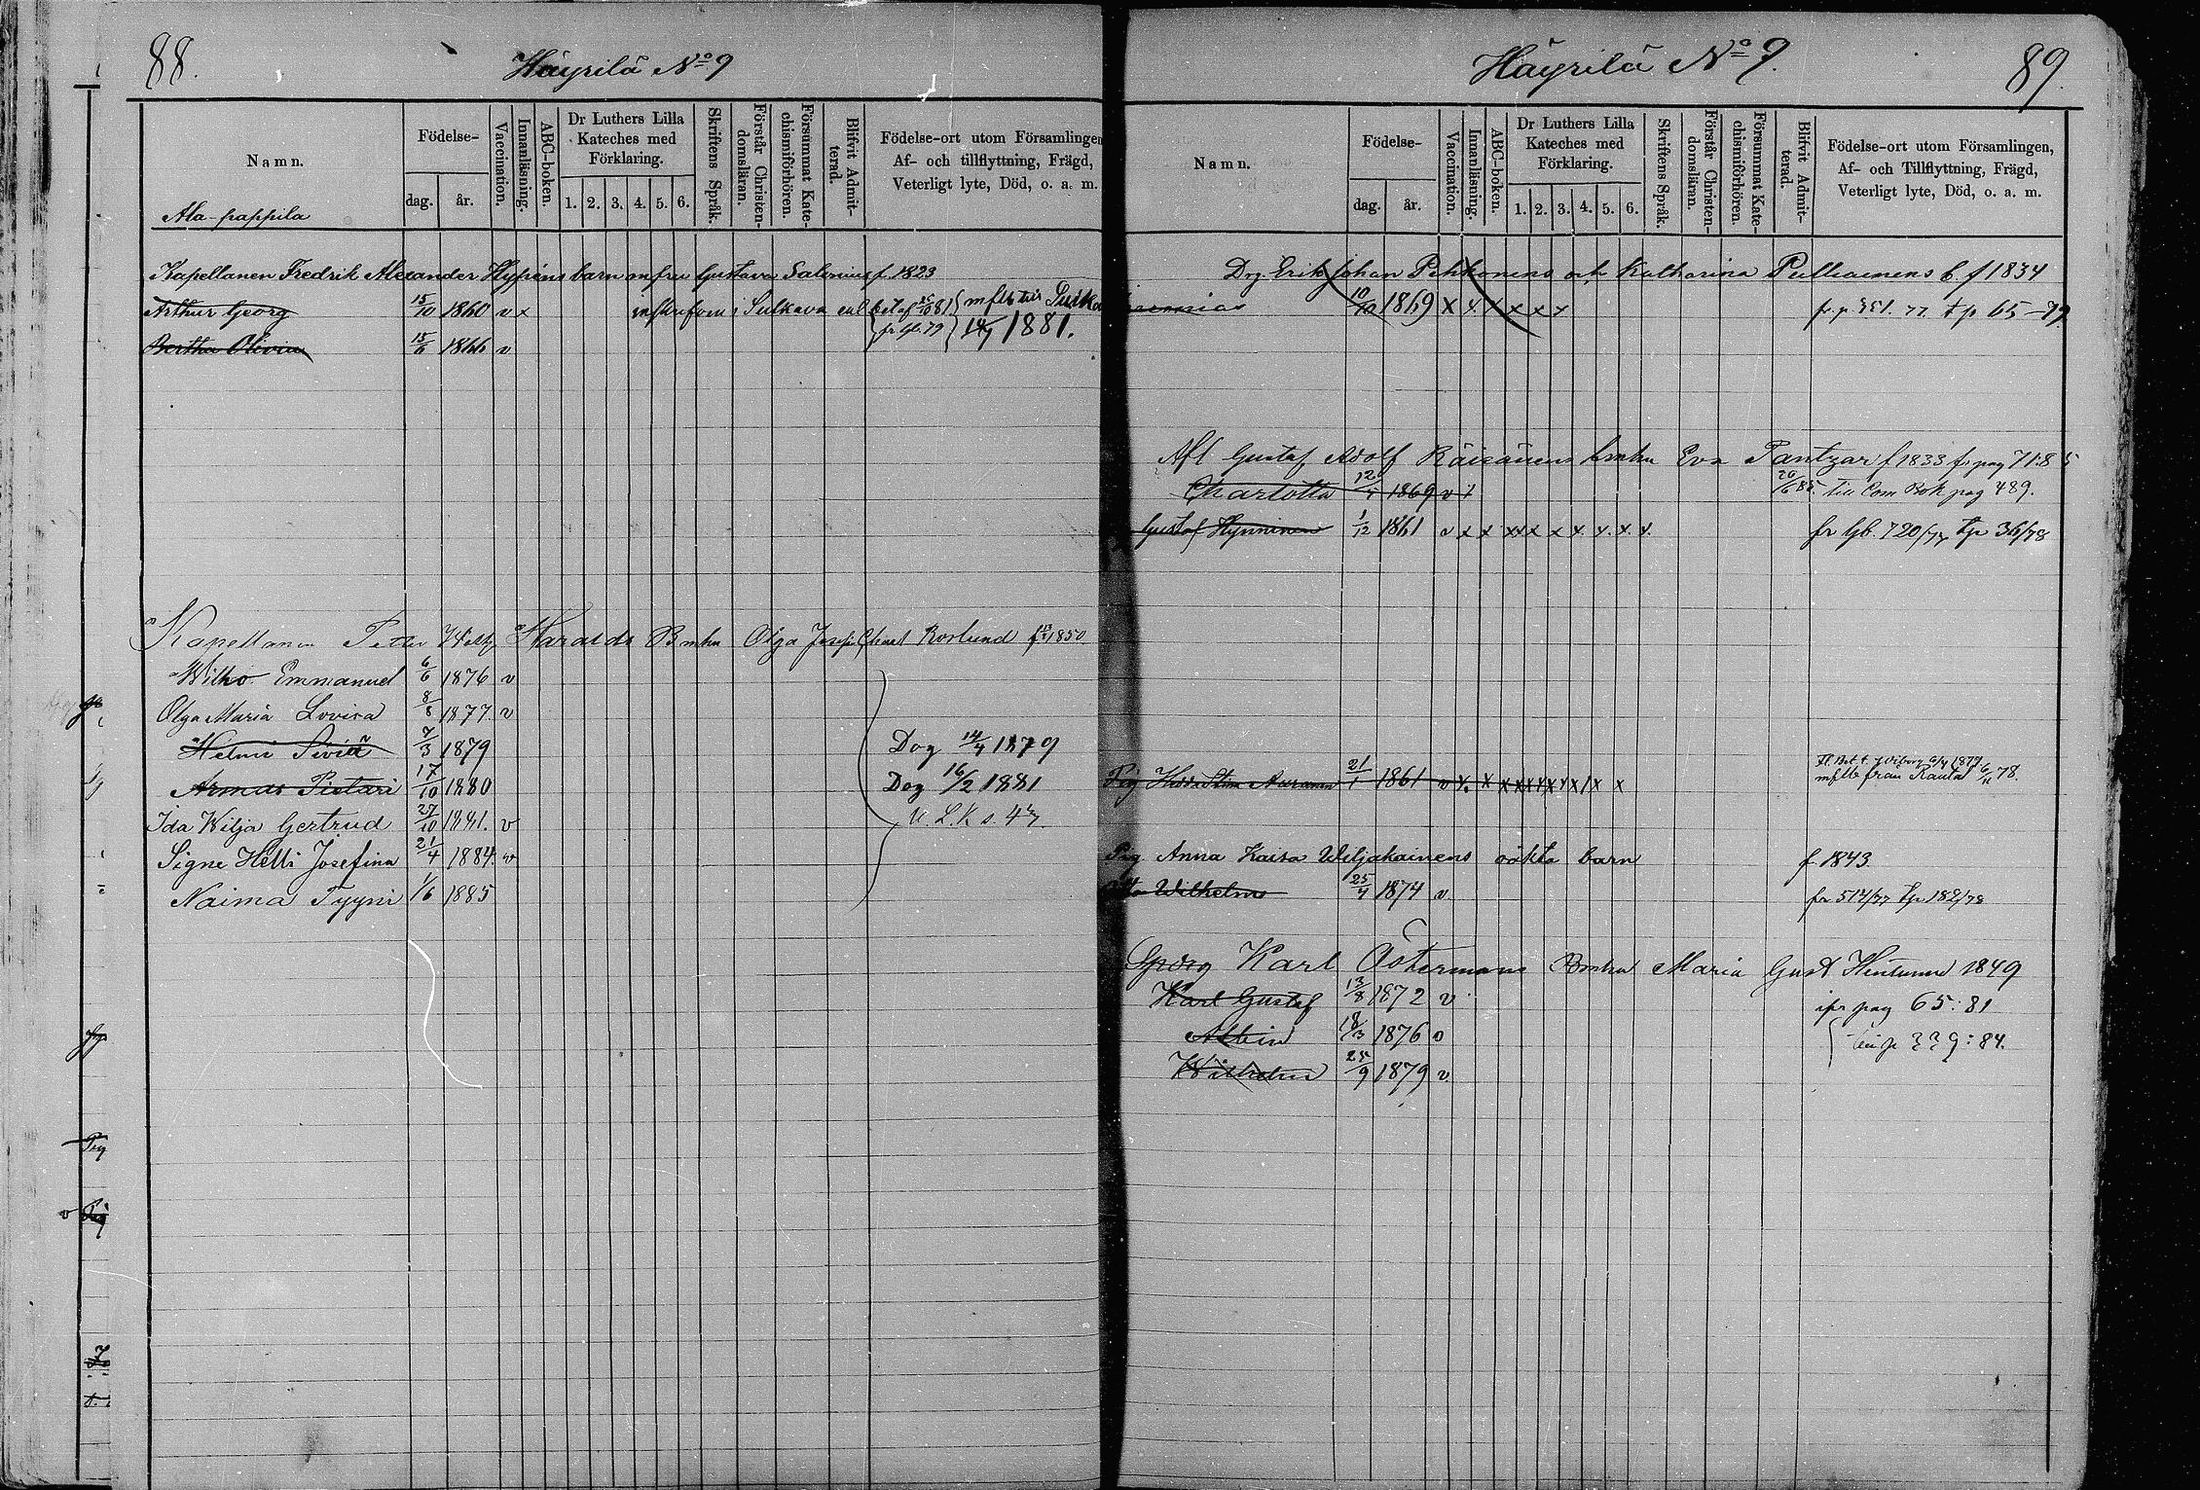 88.
Häyrilä No 9
Namn.
Födelse-
dag.
år.
Vaccination.
Innanläsning.
ABC-boken.
Dr Luthers Lilla
Kateches med
Förklaring.
1. 2. 3. 4. 5. 6.
Skriftens Språk.
Förstår Christen-
domsläran.
Försummat Kate-
chismiförhören.
Blifvit Admit-
terad.
Födelse-ort utom Församlingen
Af- och tillflyttning, Frägd,
Veterligt lyte, Död, o. a. m.
Ala-pappila
Kapellanen Fredrik Alexander Hypéns barn m fru Gustava Salonius f. 1823
Arthur Georg 15/10 1860 v x i Sulkava
1881.
Bertha Olivia 15/6 1866 v
Kapellanen Petter Haralds Bmhu Olga Rorlund 1850
Wilho Emmanuel 6/6 1876 v
Olga Maria Lovisa 8/8 1877 v
Helmi Siviä 7/3 1879 Dog 14/4 1879
Armas Pietari 17/10 1880 Dog 16/2 1881
Ida Wilja Gertrud 27/10 1881. v
Signe Helli Josefina 21/4 1884. v
Naima Tyyni 1/6 1885
Häyrilä No 9.
89.
Namn.
Födelse-
dag.
år.
Vaccination.
Innanläsning.
ABC-boken.
Dr Luthers Lilla
Kateches med
Förklaring.
1. 2. 3. 4. 5. 6.
Skriftens Språk.
Förstår Christen-
domsläran.
Försummat Kate-
chismiförhören.
Blifvit Admit-
terad.
Födelse-ort utom Församlingen,
Af- och Tillflyttning, Frägd,
Veterligt lyte, Död, o. a. m.
Drg. Erik Johan Pekkonens och Katharina Pulliainens b. f 1834
1869 x x x x x x 65-79
Afl Gustaf Adolf Räisänens bmhu Eva Pantzar f 1833 fr pag 71:85
Charlotta 12/4 1869 v x 20/6 85. till Com Bok pag 489.
Gustaf Hynninen 1/12 1861 v x x x x x x x x x x 36/78
Pig 21/1 1861 v x x x x x x x x x x x mflt från Rautus 78.
Pig. Anna Kaisa Wiljakainens oäkta barn f 1843
Wilhelm 25/4 1874 v fr 517/77 tp 182/78
Georg Karl Östermans Bmhu Maria Gust Hintunen 1849
Karl Gustaf 13/8 1872 v pag 65:81
Albin 18/3 1876 v
Wilhelm 25/9 1879 v.